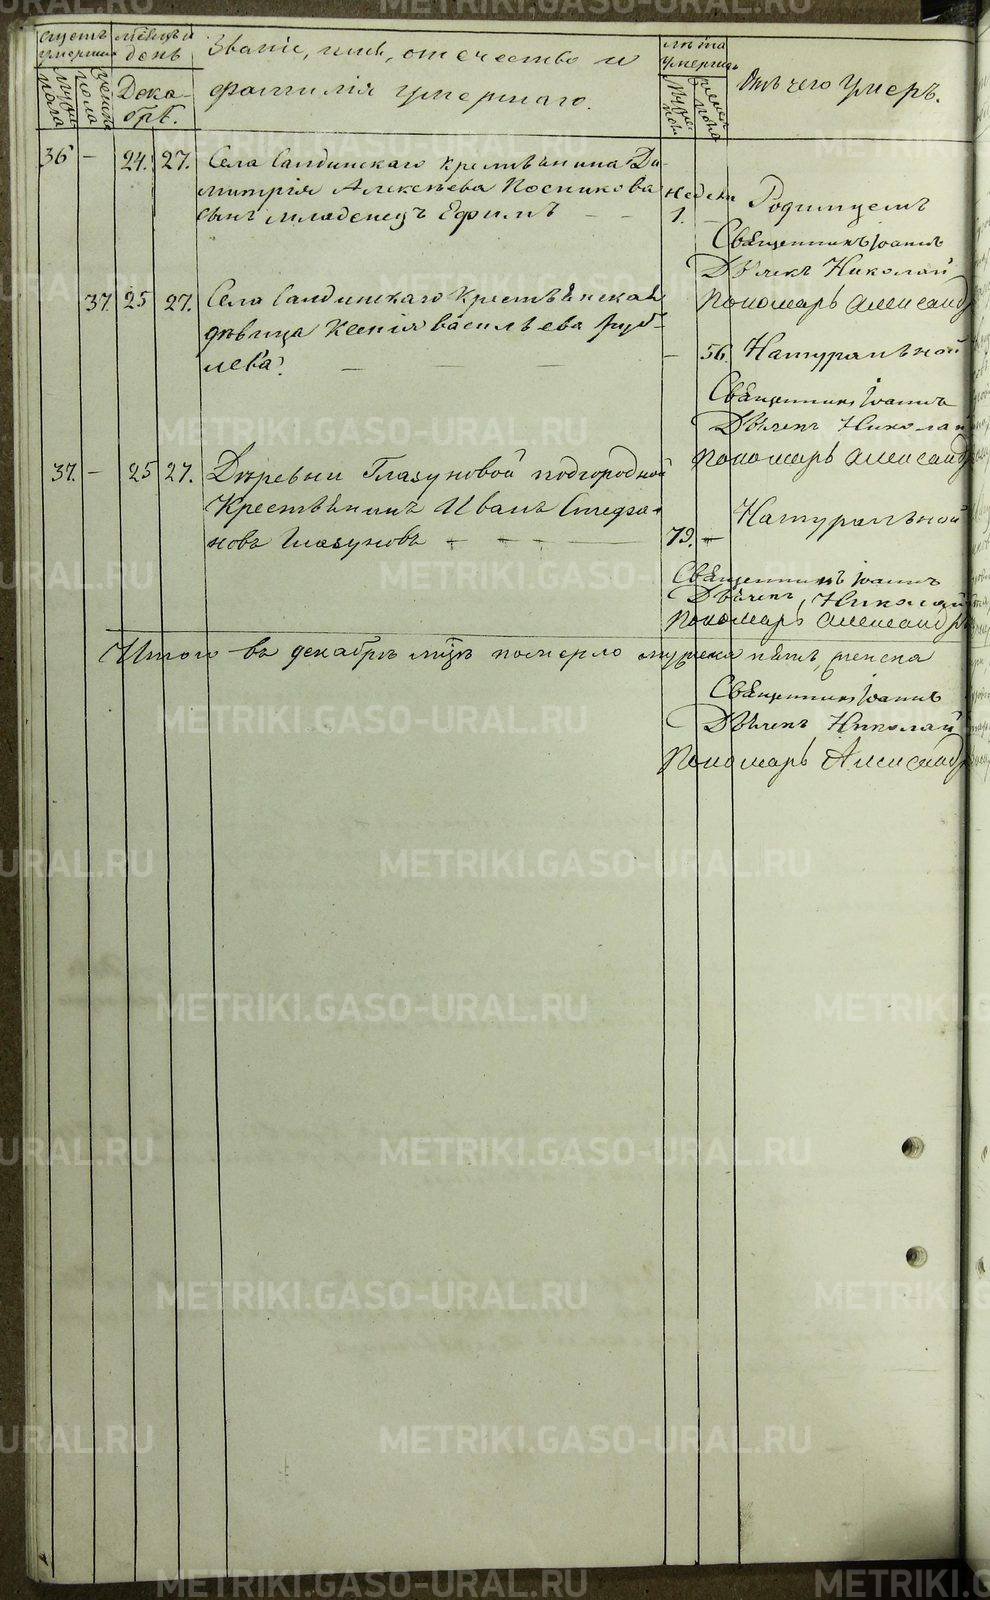 Счетъ умершихъ
мѣсяцъ и день
Званіе, имя, отечество и
фамилія умершаго.
лѣта умершихъ
Отъ чего умеръ.
мужеска пола
женска пола
Дека-
брь.
мужеска пола
женска пола
36 — 24. 27. Села Салдинскаго крестьянина Ди-
митрія Алексѣева Посникова недели
сынъ младенецъ Ефимъ — — 1. — Родимцемъ
Священникъ Іоаннъ
Дьячекъ Николай
Пономарь Александръ
37. 25 27. Села Салдинскаго крестьянская
дѣвица Ксенія Васильева Руб-
лева. — — — — 56. Натуральной
Священникъ Іоаннъ
Дьячекъ Николай
Пономарь Александръ
37. — 25 27. Деревни Глазуновой подгородной
Крестьянинъ Иванъ Стефа-
новъ Глазуновъ — — — — 79. — Натуральной
Священникъ Іоаннъ
Дьячекъ Николай
Пономарь Александръ
Итого въ декабрѣ мцѣ померло мужска пять, женска
Священникъ Іоаннъ
Дьячекъ Николай
Пономарь Александръ
METRIKI.GASO-URAL.RU